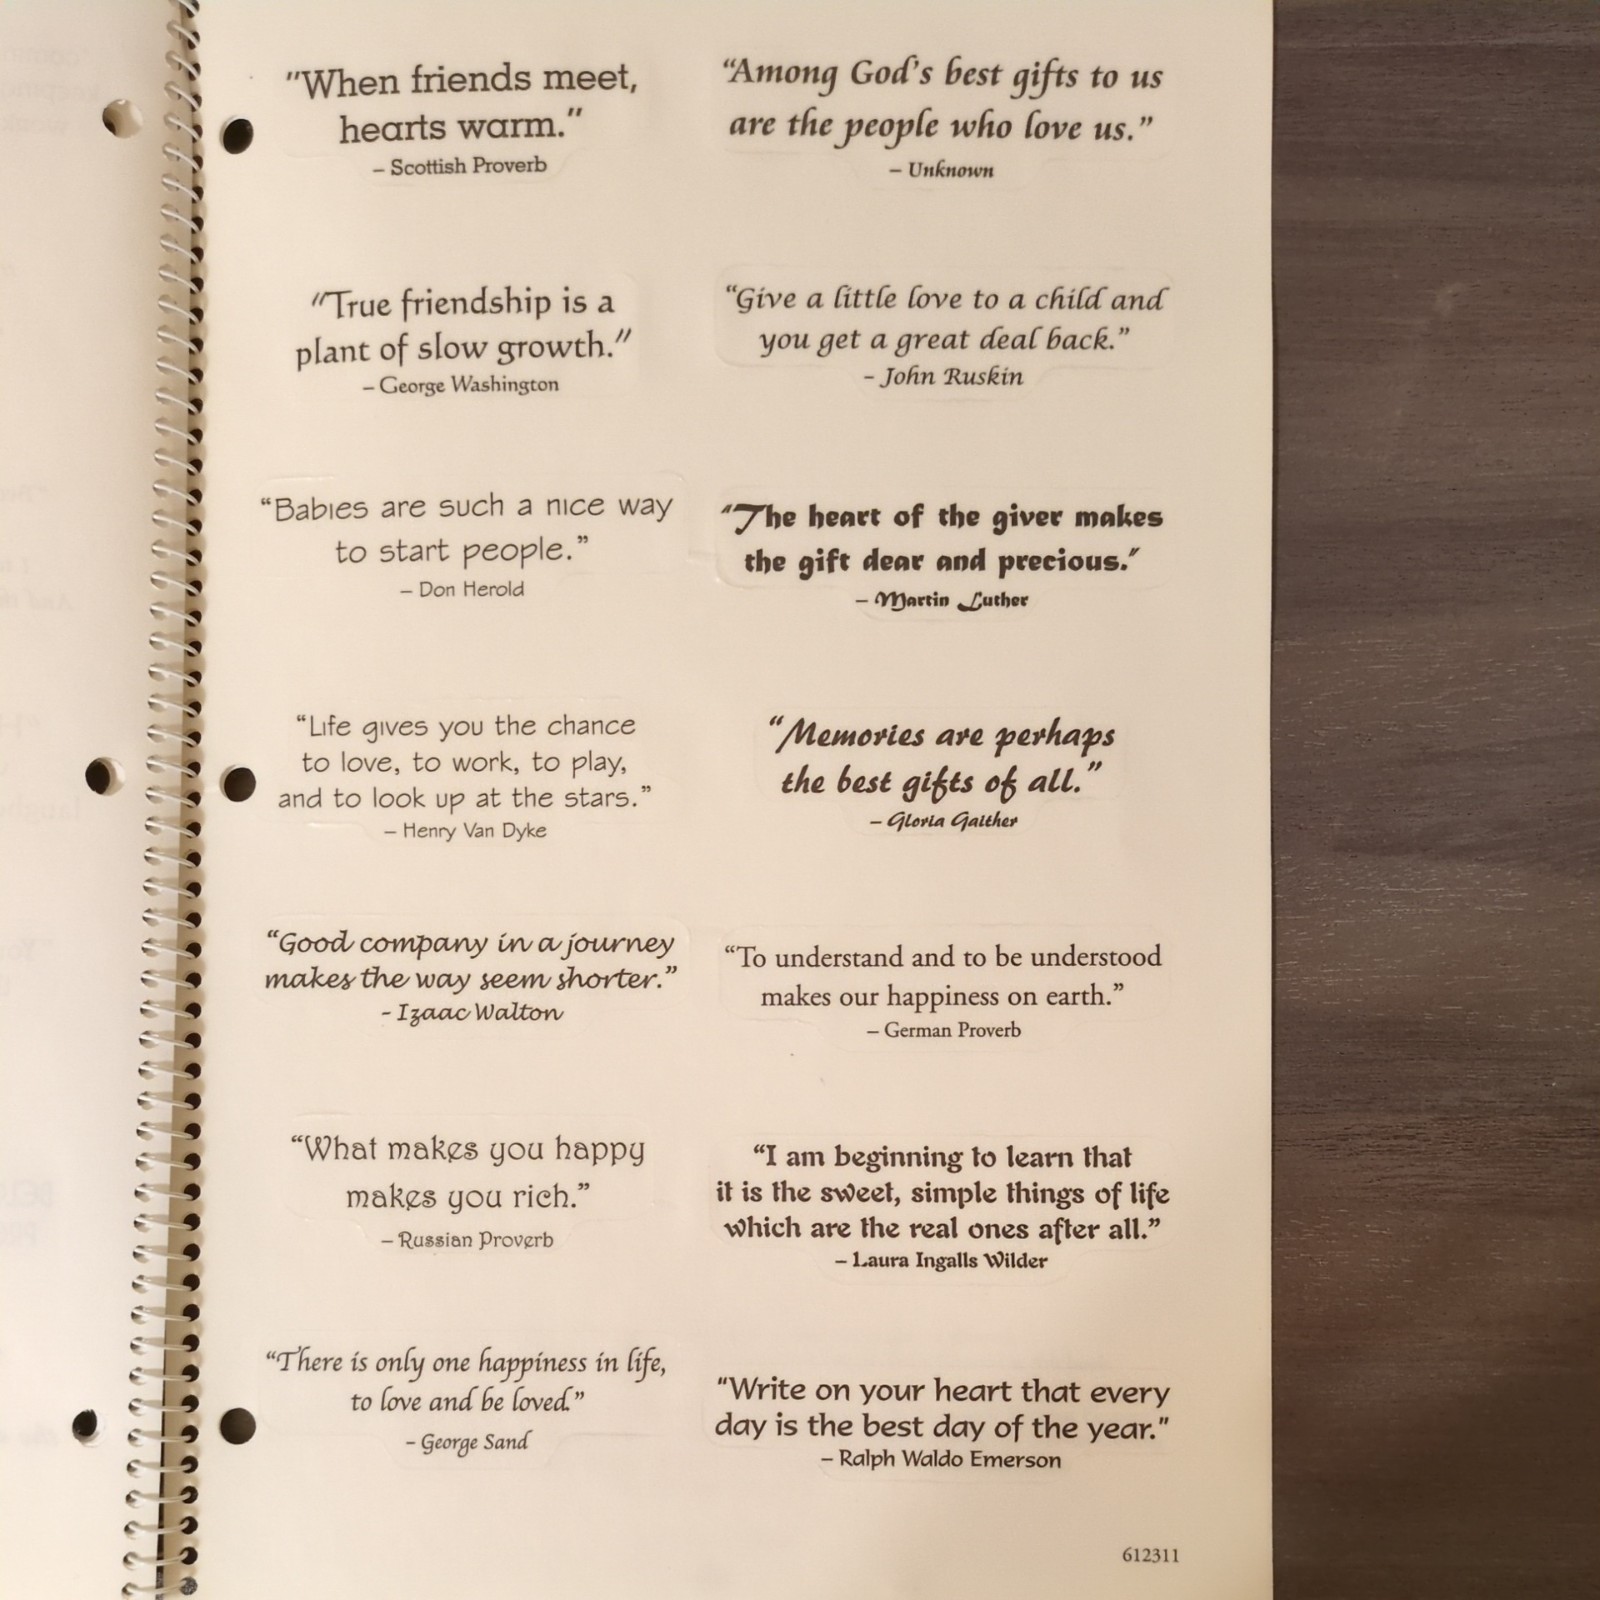 "When friends meet,
hearts warm."
– Scottish Proverb
“Among God's best gifts to us
are the people who love us.”
– Unknown
"True friendship is a
plant of slow growth."
– George Washington
“Give a little love to a child and
you get a great deal back.”
– John Ruskin
“Babies are such a nice way
to start people.”
– Don Herold
“The heart of the giver makes
the gift dear and precious.”
– Martin Luther
“Life gives you the chance
to love, to work, to play,
and to look up at the stars.”
– Henry Van Dyke
“Memories are perhaps
the best gifts of all.”
– Gloria Gaither
“Good company in a journey
makes the way seem shorter.”
- Izaac Walton
“To understand and to be understood
makes our happiness on earth.”
– German Proverb
“What makes you happy
makes you rich.”
– Russian Proverb
“I am beginning to learn that
it is the sweet, simple things of life
which are the real ones after all.”
– Laura Ingalls Wilder
“There is only one happiness in life,
to love and be loved.”
– George Sand
"Write on your heart that every
day is the best day of the year."
– Ralph Waldo Emerson
612311